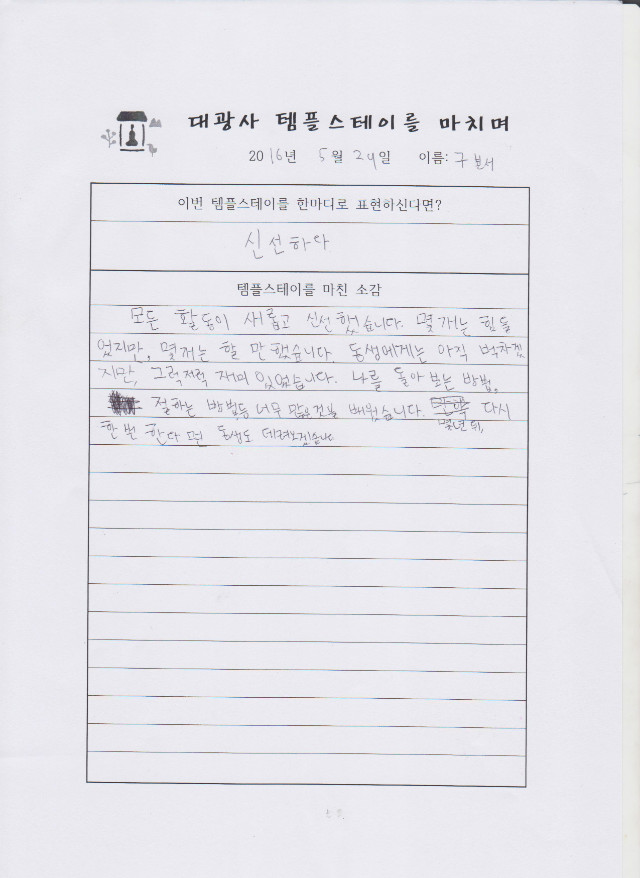 대광사 템플스테이를 마치며
2016년 5월 24일 이름: 구본서
이번 템플스테이를 한마디로 표현하신다면?
신선하다
템플스테이를 마친 소감
모든 활동이 새롭고 신선했습니다. 몇개는 힘들
었지만, 몇개는 할 만했습니다. 동생에게는 아직 벅차겠
지만, 그럭저럭 재미 있었습니다. 나를 돌아보는 방법,
절하는 방법등 너무 많은것을 배웠습니다. 다시
몇년 뒤,
한번 한다면 동생도 데려오겠습니다